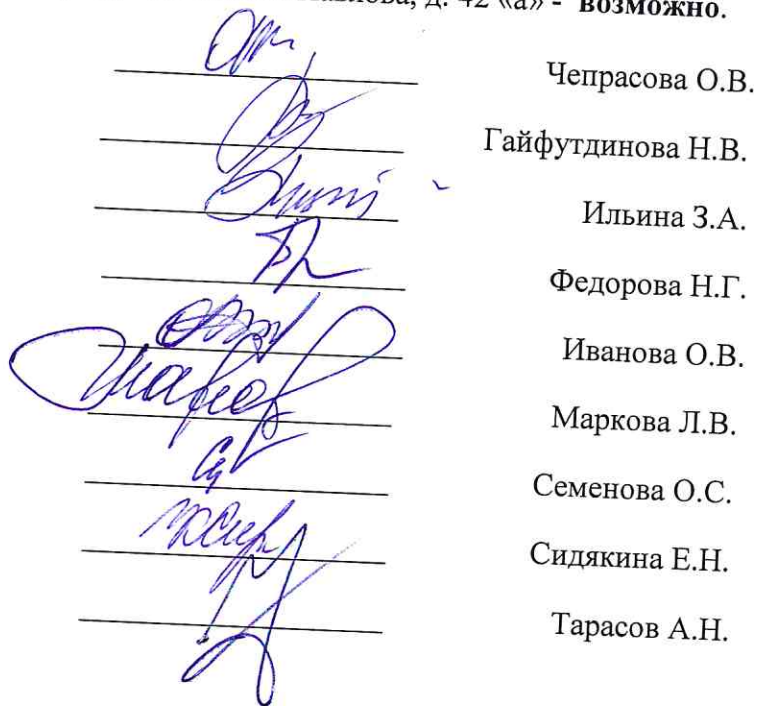 д. 42 «а» - возможно.
Чепрасова О.В.
Гайфутдинова Н.В.
Ильина З.А.
Федорова Н.Г.
Иванова О.В.
Маркова Л.В.
Семенова О.С.
Сидякина Е.Н.
Тарасов А.Н.